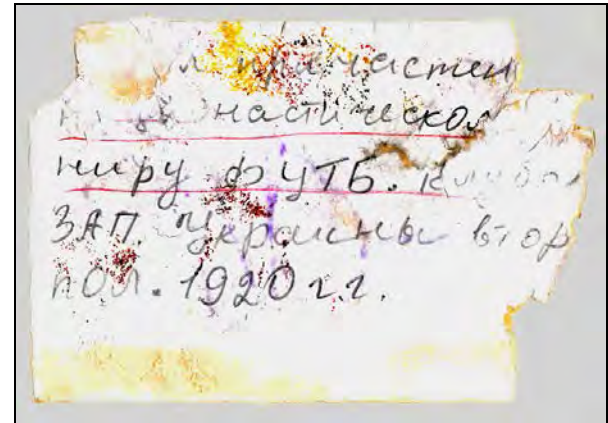 причастен
настическом
ниру футб. клубов
ЗАП. Украины втор
пол. 1920 г.г.